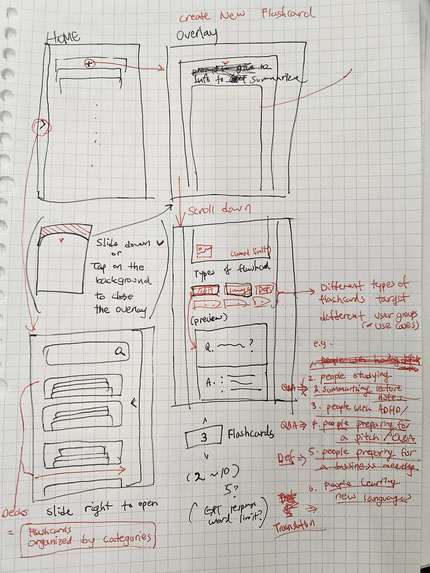 create New Flashcard
Home
Overlay
Info to summarize
Scroll down
Slide down
or
Tap on the
background
to close
the overlay
word limit
Types of flashcard
(preview)
Q.
A:
Different types of
flashcards target
different user groups
(or use cases)
e.g.
Q&A
2. people studying
summarizing lecture
notes
3. people with ADHD
Q&A
4. people preparing for
a pitch / Q&A
Def
5. people preparing for
a business meeting
6. people learning
new languages
Translation
3
Flashcards
(2 ~ 10)
5?
(GPT response
word limit?)
slide right to open
Decks
= Flashcards
organized by categories